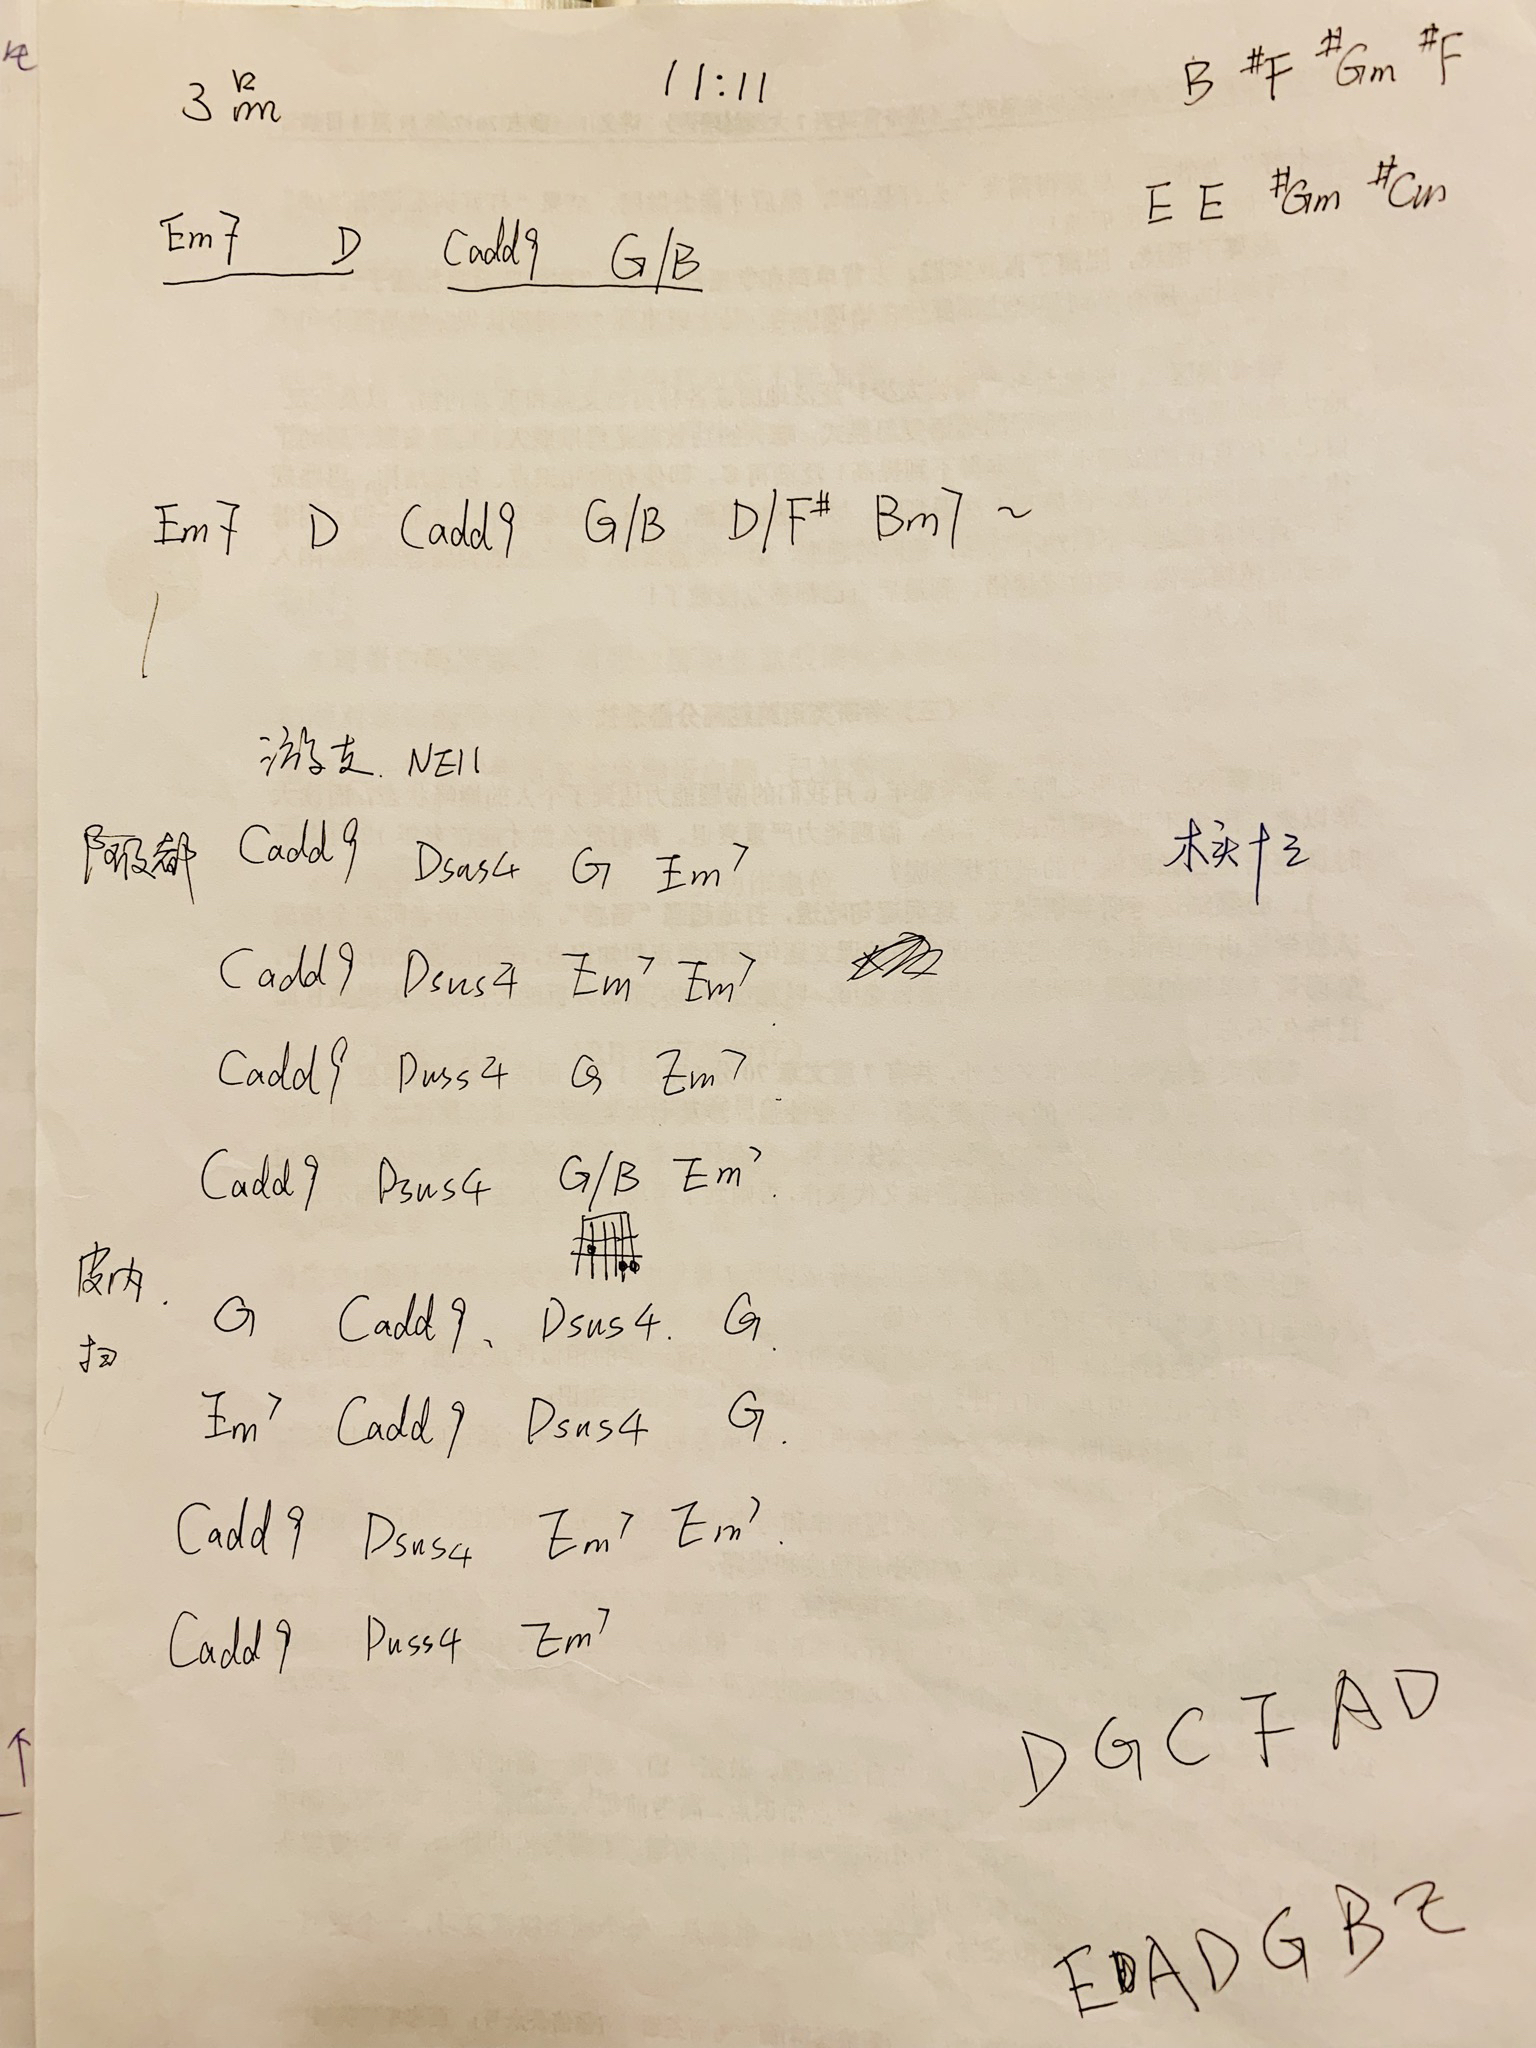 3 12 m 11:11 B #F #Gm #F
E E #Gm #Cm
Em7 D Cadd9 G/B
Em7 D Cadd9 G/B D/F# Bm7 ~
游支. NE11
Cadd9 Dsus4 G Em7
Cadd9 Dsus4 Em7 Em7
Cadd9 Duss4 G Em7.
Cadd9 Dsus4 G/B Em7.
皮内.
扫
G Cadd9、 Dsus4. G.
Em7 Cadd9 Dsus4 G.
Cadd9 Dsus4 Em7 Em7.
Cadd9 Duss4 Em7
D G C F A D
E A D G B E